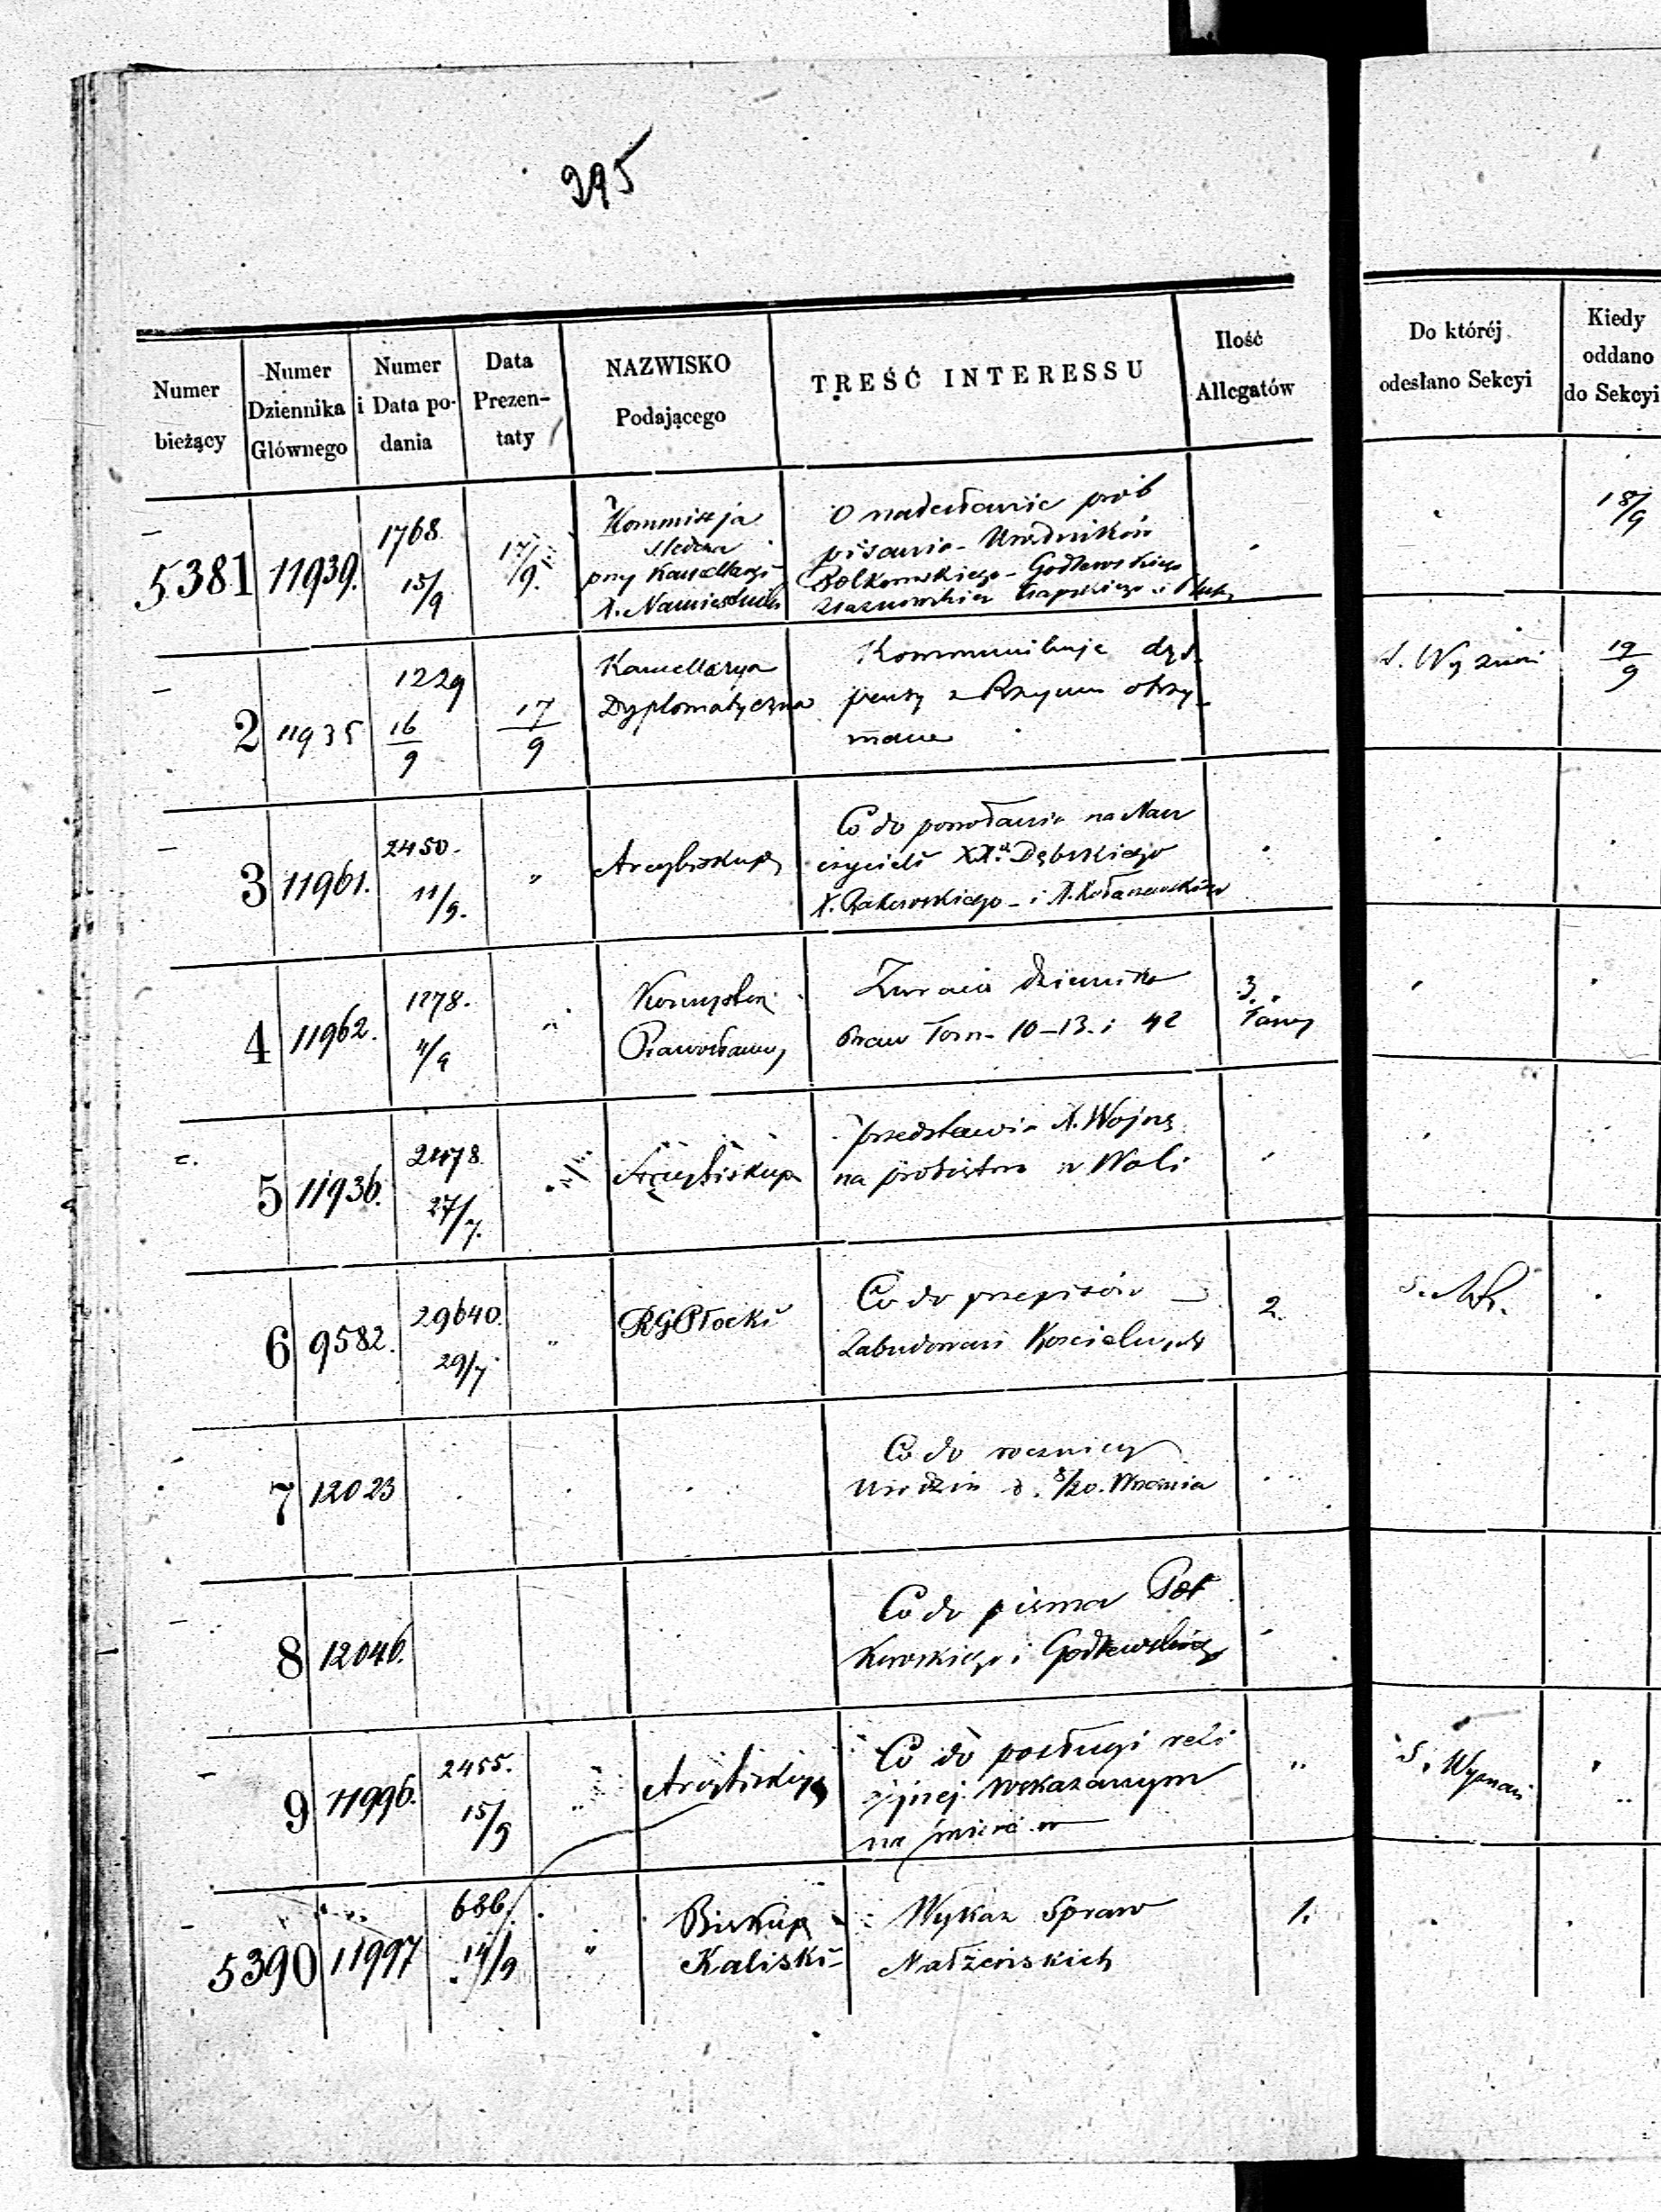 295
Numer bieżący
Numer Dziennika Głównego
Numer i Data podania
Data Prezentaty
NAZWISKO Podającego
TREŚĆ INTERESSU
Ilość Allegatów
Do któréj odesłano Sekcyi
Kiedy oddano do Sekcyi
5381 11939. 1768. 15/9 17/9.
Kommissja
Śledcza
przy Kancellaryi
X. Namiestnika
O nadesłanie prób
pisania - Urzędników
Godlewskiego
18/9
2 11935 1229 16/9 17/9
Kancellarya
Dyplomatyczna
Kommunikuje dys-
pensy z Rzymu otrzy-
mane
S. Wyznań 19/9
3 11961. 2450. 11/9. "
Arcybiskup
Co do powołania na Nau
czycieli XX. Dębskiego
X. Rakowskiego - i X.
4 11962. 1278. 11/9 "
Konsystorz
Prawosławny
Zwraca Dziennik
Praw Tom - 10 - 13. i 42
3. Tomy
5 11936. 2478 27/7. "
Arcybiskup
przedstawia X. Wojnę
na probostwo w Woli
6 9582. 29640. 29/7. "
RGPłocki
Co do przepisów
Zabudowań Kościelnych
2.
S.
7 12023
Co do rocznicy
Urodzin d. 8/20. Września
8 12046.
Co do pisma Poł
kowskiego i Godlewskiego
9 11996. 2455. 15/9 "
Arcybiskup
Co do posługi reli
gijnej wskazanym
na śmierć
"
S. Wyznań
5390 11997 636 14/9 "
Biskup
Kaliski
Wykaz Spraw
Małżeńskich
1.